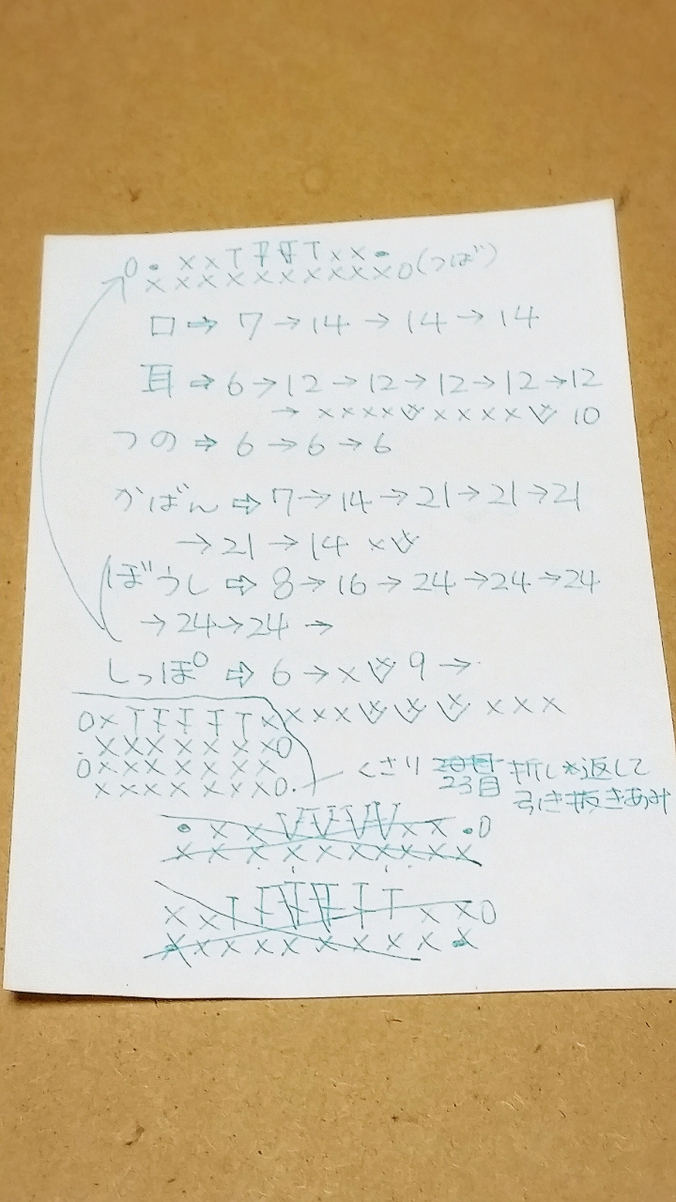 0 • x x T Ŧ Ŧ T x x •
x x x x x x x x x x 0 (つば)
口 ⇨ 7 → 14 → 14 → 14
耳 ⇨ 6 → 12 → 12 → 12 → 12 → 12
→ x x x x x x x x 10
つの ⇨ 6 → 6 → 6
かばん ⇨ 7 → 14 → 21 → 21 → 21
→ 21 → 14 x
ぼうし ⇨ 8 → 16 → 24 → 24 → 24
→ 24 → 24 →
しっぽ ⇨ 6 → x 9 →
0 x T Ŧ Ŧ Ŧ T x x x x x x x
. x x x x x x x 0
0 x x x x x x x
x x x x x x x 0 .
くさり 23目 折り返して
引き抜きあみ
• x x V V V V x x . 0
x x x x x x x x x x
x x T T T x x 0
x x x x x x x x x x